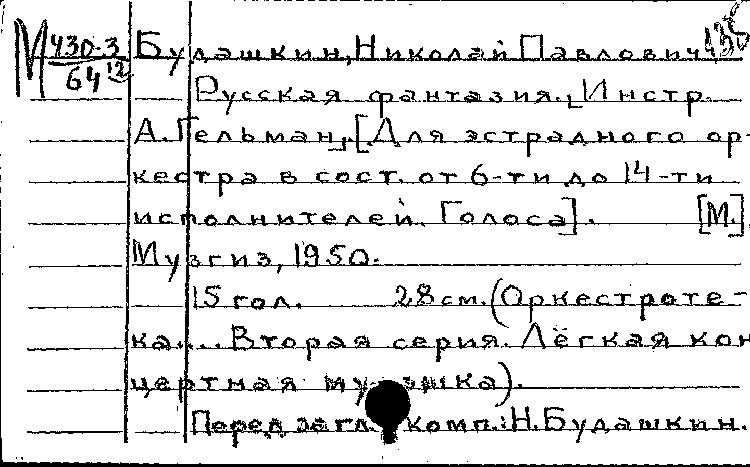 М 430-3/64 12 Будашкин, Николай Павлович.
Русская фантазия. Инстр.
А. Гельман. [Для эстрадного ор-
кестра в сост. от 6-ти до 14-ти
исполнителей. Голоса]. [М.],
Музгиз, 1950.
15 гол. 28 см. (Оркестроте-
ка.... Вторая серия. Лёгкая кон
цертная музыка).
Перед загл. комп.: Н. Будашкин.